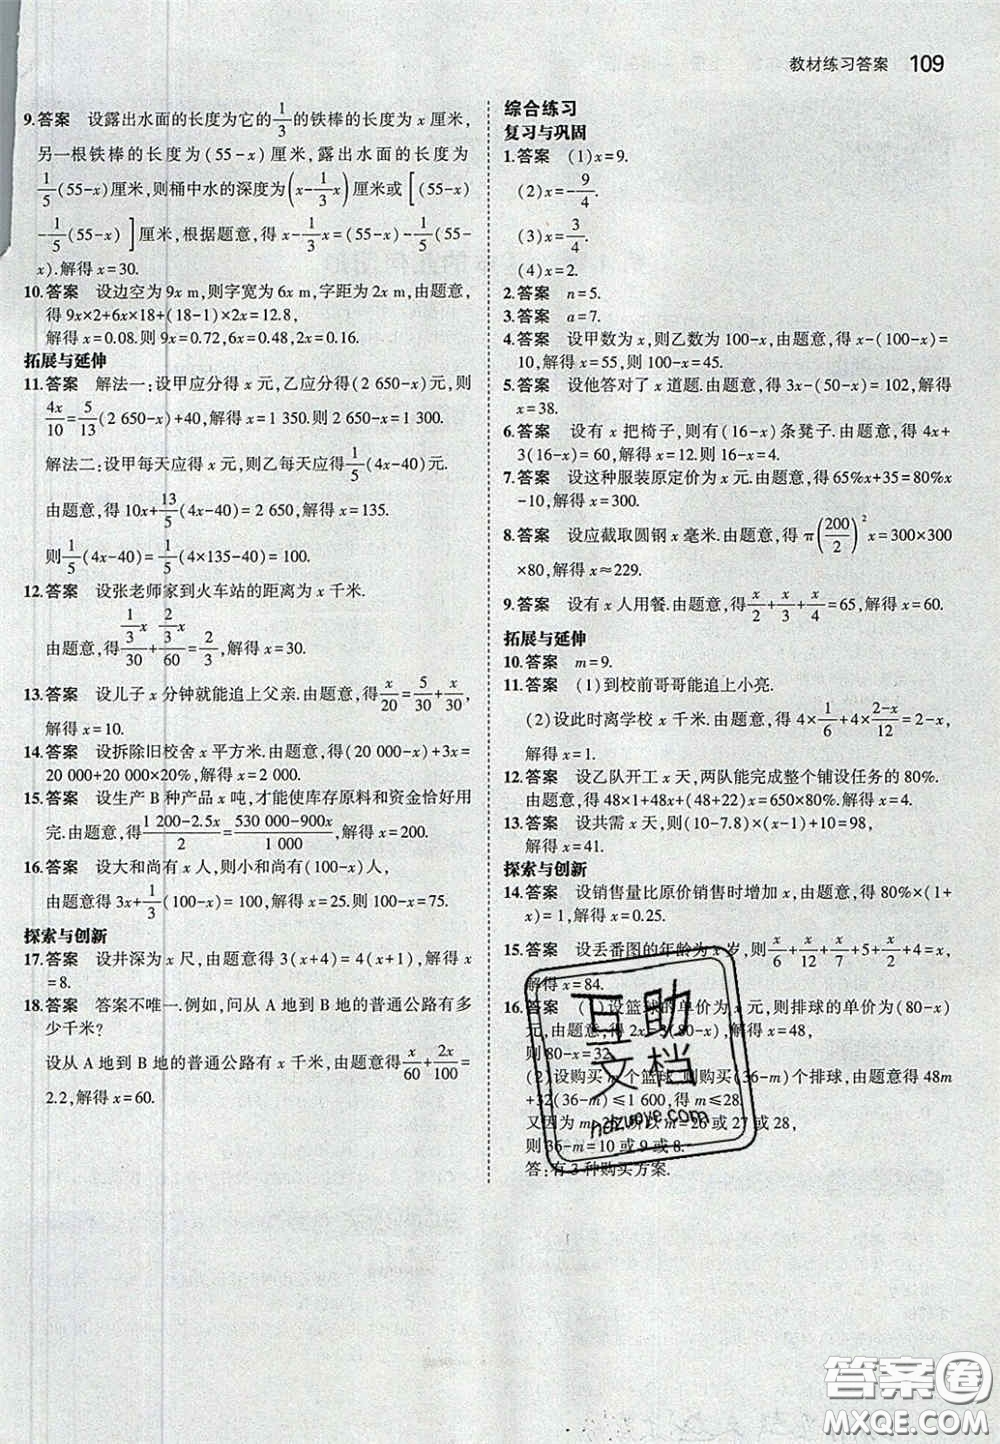 教材练习答案 109
9.答案 设露出水面的长度为它的1/3的铁棒的长度为x厘米,
另一根铁棒的长度为(55-x)厘米,露出水面的长度为
1/5(55-x)厘米,则桶中水的深度为(x-1/3x)厘米或[(55-x)
-1/5(55-x)]厘米,根据题意,得x-1/3x=(55-x)-1/5(55-
x).解得x=30.
10.答案 设边空为9x m,则字宽为6x m,字距为2x m,由题意,
得9x×2+6x×18+(18-1)×2x=12.8,
解得x=0.08.则9x=0.72,6x=0.48,2x=0.16.
拓展与延伸
11.答案 解法一:设甲应分得x元,乙应分得(2 650-x)元,则
4x/10=5/13(2 650-x)+40,解得x=1 350.则2 650-x=1 300.
解法二:设甲每天应得x元,则乙每天应得1/5(4x-40)元.
由题意,得10x+13/5(4x-40)=2 650,解得x=135.
则1/5(4x-40)=1/5(4×135-40)=100.
12.答案 设张老师家到火车站的距离为x千米.
由题意,得(1/3x)/30+(2/3x)/60=2/3,解得x=30.
13.答案 设儿子x分钟就能追上父亲.由题意,得x/20=5/30+x/30,
解得x=10.
14.答案 设拆除旧校舍x平方米.由题意,得(20 000-x)+3x=
20 000+20 000×20%,解得x=2 000.
15.答案 设生产B种产品x吨,才能使库存原料和资金恰好用
完.由题意,得(1 200-2.5x)/2=(530 000-900x)/1 000,解得x=200.
16.答案 设大和尚有x人,则小和尚有(100-x)人,
由题意,得3x+1/3(100-x)=100,解得x=25.则100-x=75.
探索与创新
17.答案 设井深为x尺,由题意得3(x+4)=4(x+1),解得x
=8.
18.答案 答案不唯一.例如,问从A地到B地的普通公路有多
少千米?
设从A地到B地的普通公路有x千米,由题意得x/60+2x/100=
2.2,解得x=60.
综合练习
复习与巩固
1.答案 (1)x=9.
(2)x=-9/4.
(3)x=3/4.
(4)x=2.
2.答案 n=5.
3.答案 a=7.
4.答案 设甲数为x,则乙数为100-x,由题意,得x-(100-x)=
10,解得x=55,则100-x=45.
5.答案 设他答对了x道题.由题意,得3x-(50-x)=102,解得
x=38.
6.答案 设有x把椅子,则有(16-x)条凳子.由题意,得4x+
3(16-x)=60,解得x=12.则16-x=4.
7.答案 设这种服装原定价为x元.由题意,得65%x+35=80%
x-10,解得x=300.
8.答案 设应截取圆钢x毫米.由题意,得π(200/2)²x=300×300
×80,解得x≈229.
9.答案 设有x人用餐.由题意,得x/2+x/3+x/4=65,解得x=60.
拓展与延伸
10.答案 m=9.
11.答案 (1)到校前哥哥能追上小亮.
(2)设此时离学校x千米.由题意,得4×1/6+4×(2-x)/12=2-x,
解得x=1.
12.答案 设乙队开工x天,两队能完成整个铺设任务的80%.
由题意,得48×1+48x+(48+22)x=650×80%,解得x=4.
13.答案 设共需x天,则(10-7.8)×(x-1)+10=98,
解得x=41.
探索与创新
14.答案 设销售量比原价销售时增加x,由题意,得80%×(1+
x)=1,解得x=0.25.
15.答案 设丢番图的年龄为x岁,则x/6+x/12+x/7+5+x/2+4=x,
解得x=84.
16.答案 (1)设篮球的单价为x元,则排球的单价为(80-x)
元,由题意,得2x=3(80-x),解得x=48,
则80-x=32.
(2)设购买m个篮球,则购买(36-m)个排球,由题意得48m
+32(36-m)≤1 600,解得m≤28.
又因为m>25,所以m=26或27或28,
则36-m=10或9或8.
答:有3种购买方案.
互助
文档
hdzuoye.com
答案圈
MXQE.COM